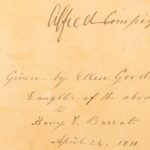 Alfred
Given by Ellen Good
Daughter of the above
to
Mary V. Barrat
April 24, 1911